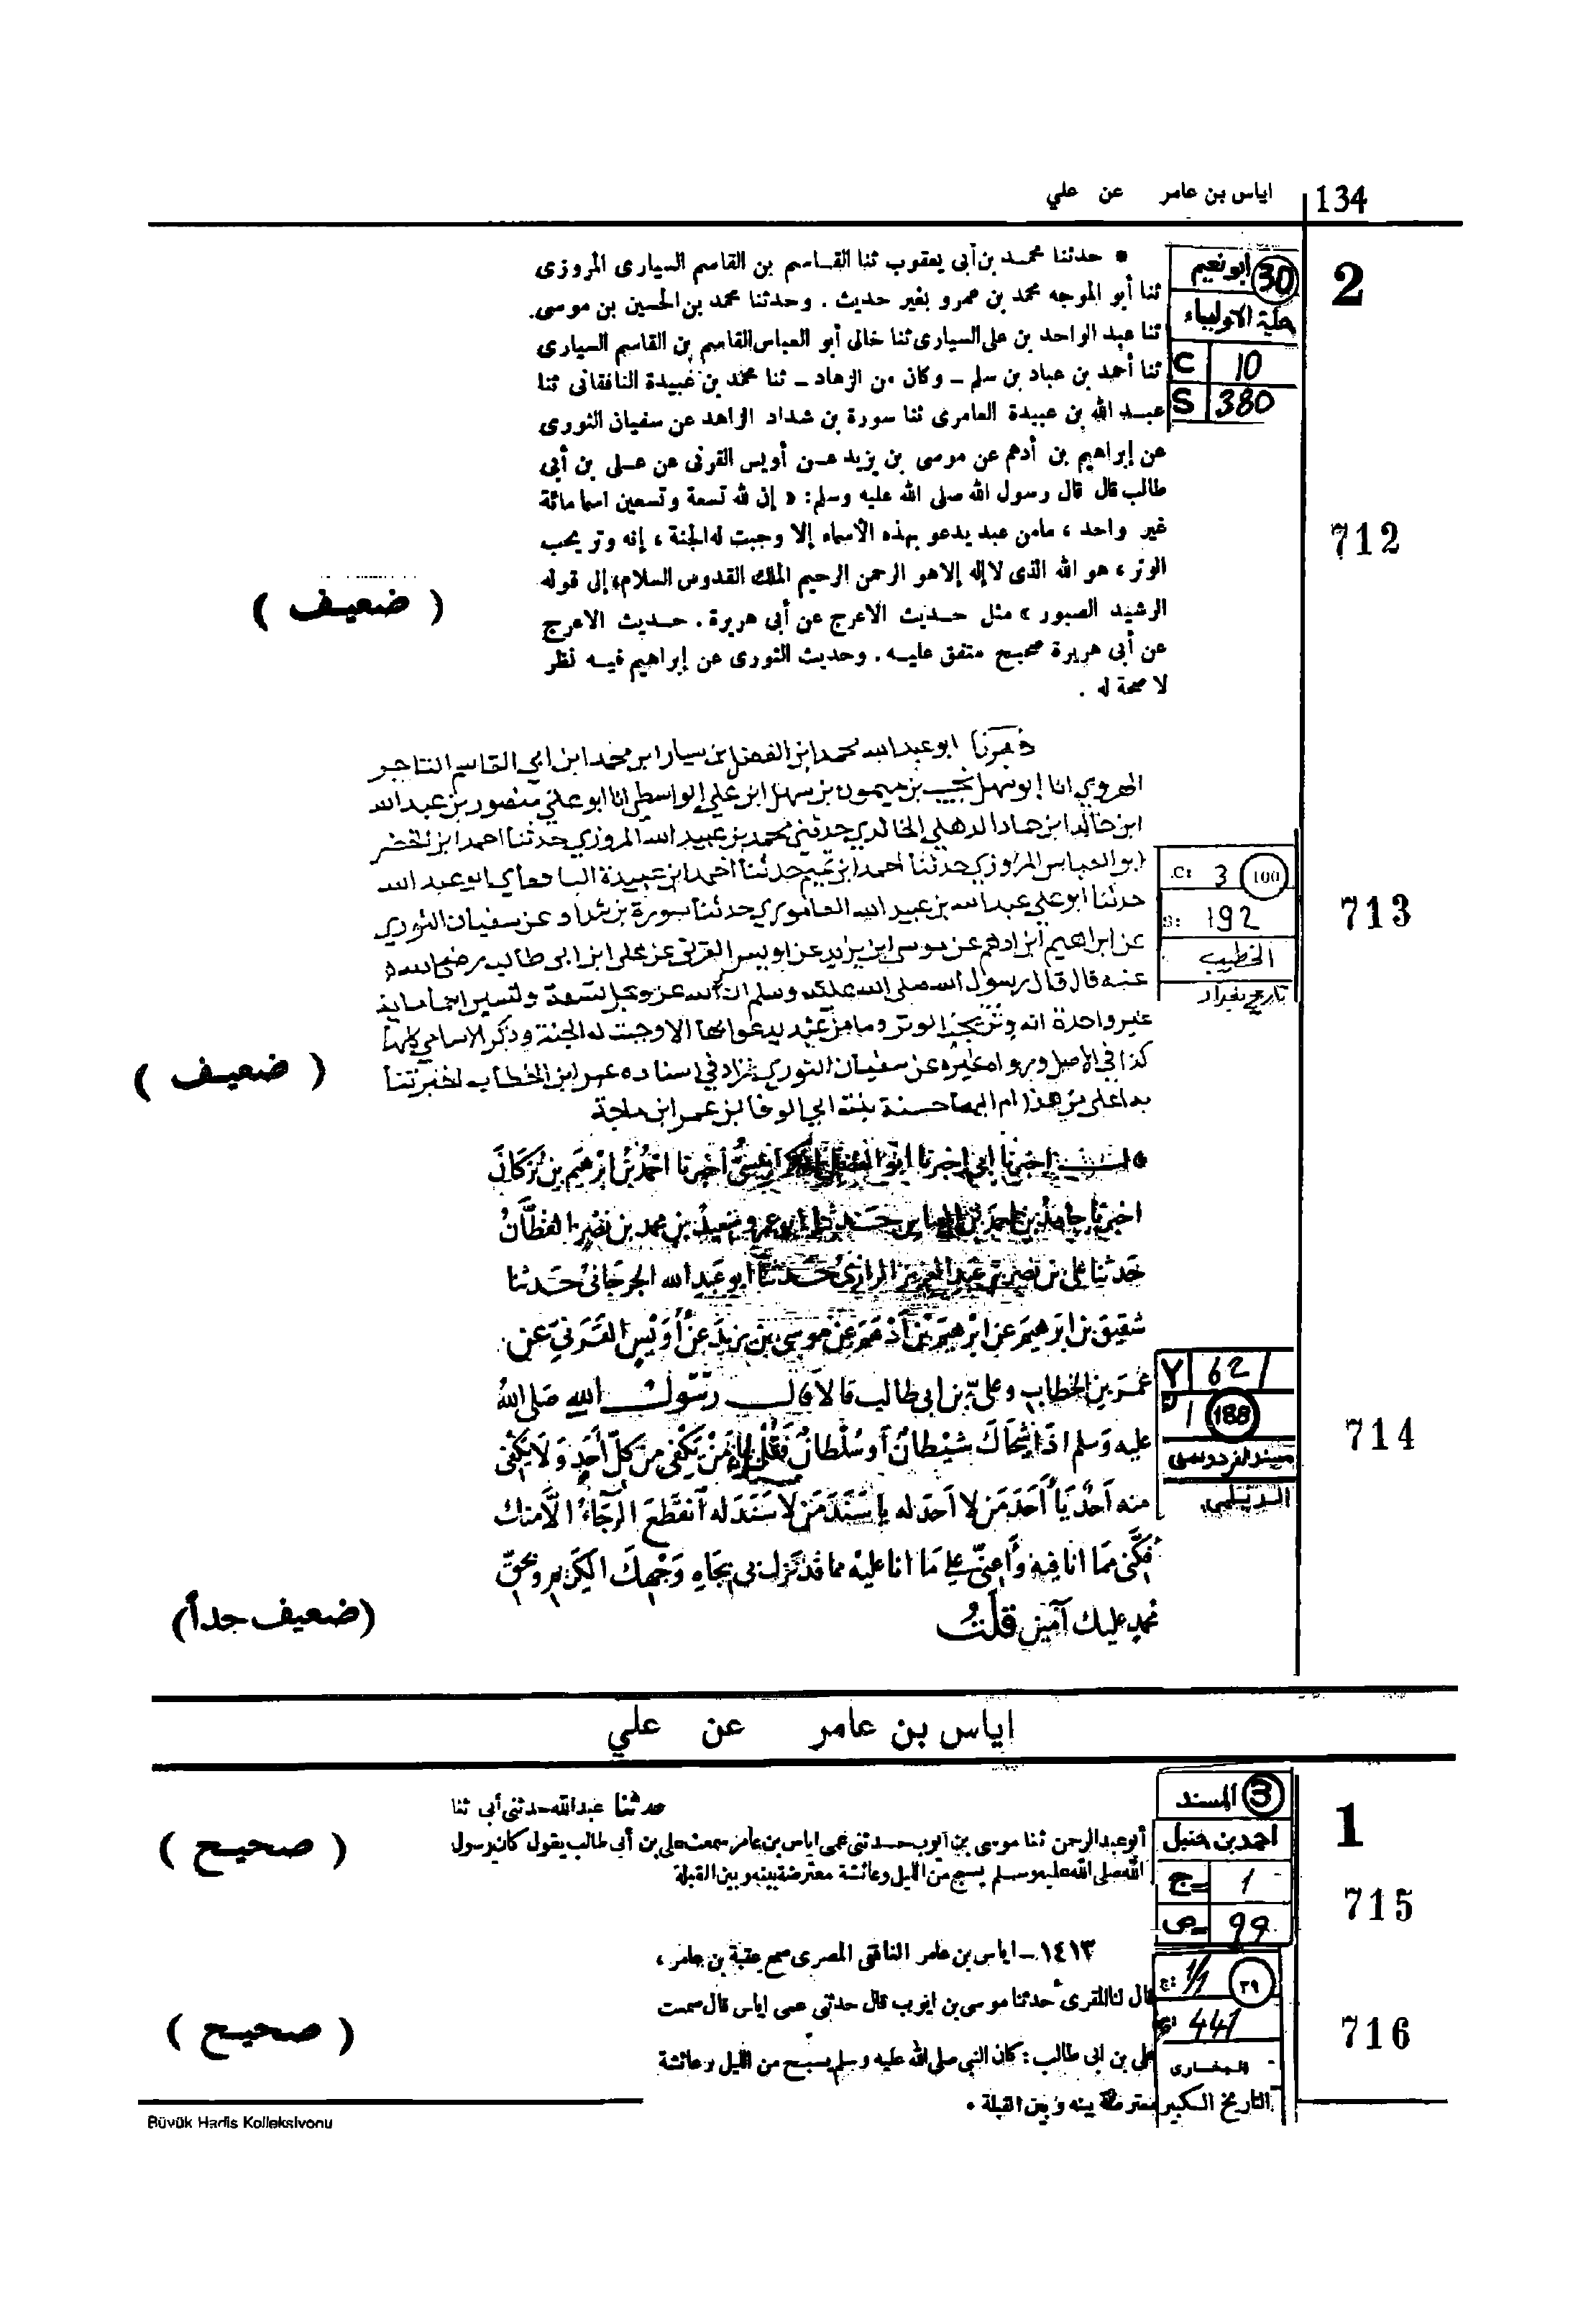 134
اياس بن عامر عن علي
2
30 أبو نعيم
حلية الاولياء
C 10
S 380
* حدثنا محمد بن أبى يعقوب ثنا القاسم بن القاسم السيارى المروزى
ثنا أبو الموجه محمد بن عمرو بغير حديث . وحدثنا محمد بن الحسين بن موسى .
ثنا عبد الواحد بن على السيارى ثنا خالى أبو العباس القاسم بن القاسم السيارى
ثنا أحمد بن عباد بن سلم ــ وكان من الزهاد ــ ثنا محمد بن عبيدة النافقانى ثنا
عبد الله بن عبيدة العامرى ثنا سورة بن شداد الزاهد عن سفيان الثورى
عن إبراهيم بن أدهم عن موسى بن يزيد عن أويس القرنى عن على بن أبى
طالب قال قال رسول الله صلى الله عليه وسلم : « إن لله تسعة وتسعين اسما مائة
غير واحد ، مامن عبد يدعو بهذه الأسماء إلا وجبت له الجنة ، إنه وتر يحب
الوتر ، هو الله الذى لا إله إلا هو الرحمن الرحيم الملك القدوس السلام، إلى قوله
الرشيد الصبور » مثل حديث الاعرج عن أبى هريرة . حديث الاعرج
عن أبى هريرة صحيح متفق عليه . وحديث الثورى عن إبراهيم فيه نظر
لا صحة له .
712
( ضعيف )
ابو عبد الله محمد ابن الفضل ابن سيار ابن محمد ابن ابي القاسم التاجر
الهروي انا ابو سهل نجيب بن ميمون بن سهل ابن علي الواسطي انا ابو علي منصور بن عبد الله
ابن خالد ابن حماد الدهلي الخالدي حدثني محمد بن عبيد الله المروزي حدثنا احمد ابن الخضر
ابو العباس المروزي حدثنا احمد ابن تميم حدثنا احمد ابن عبيدة ابو عبد الله
حدثنا ابو علي عبد الله بن عبيد الله العاموري حدثنا سورة بن شداد عن سفيان الثوري
عن ابراهيم ابن ادهم عن موسى ابن يزيد عن اويس القرني عن علي ابن ابي طالب رضي الله
عنه قال قال رسول الله صلى الله عليه وسلم ان لله عز وجل تسعة وتسعين اسما ماية
غير واحدة انه وتر يحب الوتر وما من عبد يدعوا بها الا وجبت له الجنة وذكر الاسامي كلها
كذا في الاصل ورواه غيره عن سفيان الثوري فزاد في اسناده عمر ابن الخطاب اخبرتنا
به اعلى من هذا ام البها حسنة بنت ابي الوفا بن عمر ابن ماجة
C: 3 100
S: 192
الخطيب
تاريخ بغداد
713
( ضعيف )
اخبرنا ابي اخبرنا ابو الفضل اخبرنا احمد بن ابرهيم بن تركان
اخبرنا حامد بن احمد بن العباس حدثنا ابو عمرو سعيد بن محمد بن نصر القطان
حدثنا علي بن نصير بن عبد العزيز الرازي حدثنا ابو عبد الله الجرجاني حدثنا
شقيق بن ابرهيم عن ابرهيم بن أدهم عن موسى بن يزيد عن أويس القرني عن
عمر بن الخطاب وعلي بن ابي طالب قالا قال رسول الله صلى الله
عليه وسلم اذا شجاك شيطان أو سلطان فقل يا من يكفي من كل أحد ولا يكفى
منه أحد يا أحد من لا احد له يا سند من لا سند له انقطع الرجاء الا منك
فكني مما انا فيه وأعني على ما انا عليه مما قد نزل بي بجاه وجهك الكريم وبحق
محمد عليك آمين قلت
Y 62
188
مسند الفردوسى
الديلمي
714
(ضعيف جداً)
اياس بن عامر عن علي
1
3 المسند
احمد بن حنبل
ج 1
ص 99
حدثنا عبد الله حدثنى أبى ثنا
أبو عبد الرحمن ثنا موسى بن أيوب حدثنى عمى اياس بن عامر سمعت على بن أبى طالب يقول كان رسول
الله صلى الله عليه وسلم يسبح من الليل وعائشة معترضة بينه وبين القبلة
715
( صحيح )
١٤١٣ ــ اياس بن عامر الغافقى المصرى سمع عقبة بن عامر ،
قال لنا المقرىء حدثنا موسى بن ايوب قال حدثنى عمى اياس قال سمعت
على بن ابى طالب : كان النبى صلى الله عليه وسلم يسبح من الليل وعائشة
معترضة بينه وبين القبلة .
ج: 1/1 ٣٩
ص: 441
البخارى
التاريخ الكبير
716
( صحيح )
Büyük Hadis Kolleksivonu